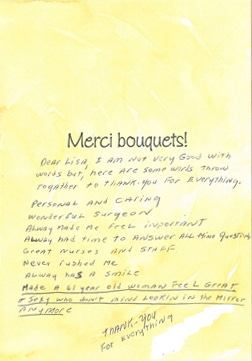 Merci bouquets!
Dear Lisa, I am not very Good with
words but, here are some words throw
together to thank-you for everything.
Personal and caring
Wonderful Surgeon
Alway made me feel important
Alway had time to answer all mine questions
Great nurses and staff
Never rushed me
Alway has a smile
Made a 61 year old woman feel Great
& sexy who don't mind lookin in the mirror
anymore
Thank-you
for everything